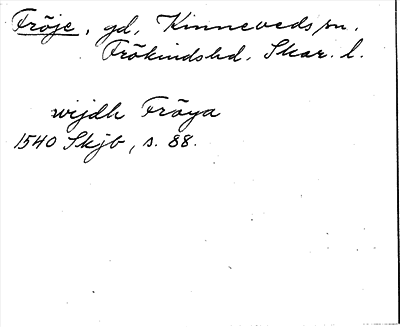 Fröje, gd, Kinneveds sn.
Frökindshd. Skar. l.
wijdh Fröya
1540 Skjb, s. 88.